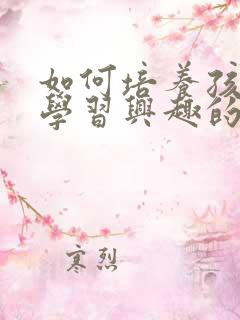 如何培養孩
學習興趣的
寒烈